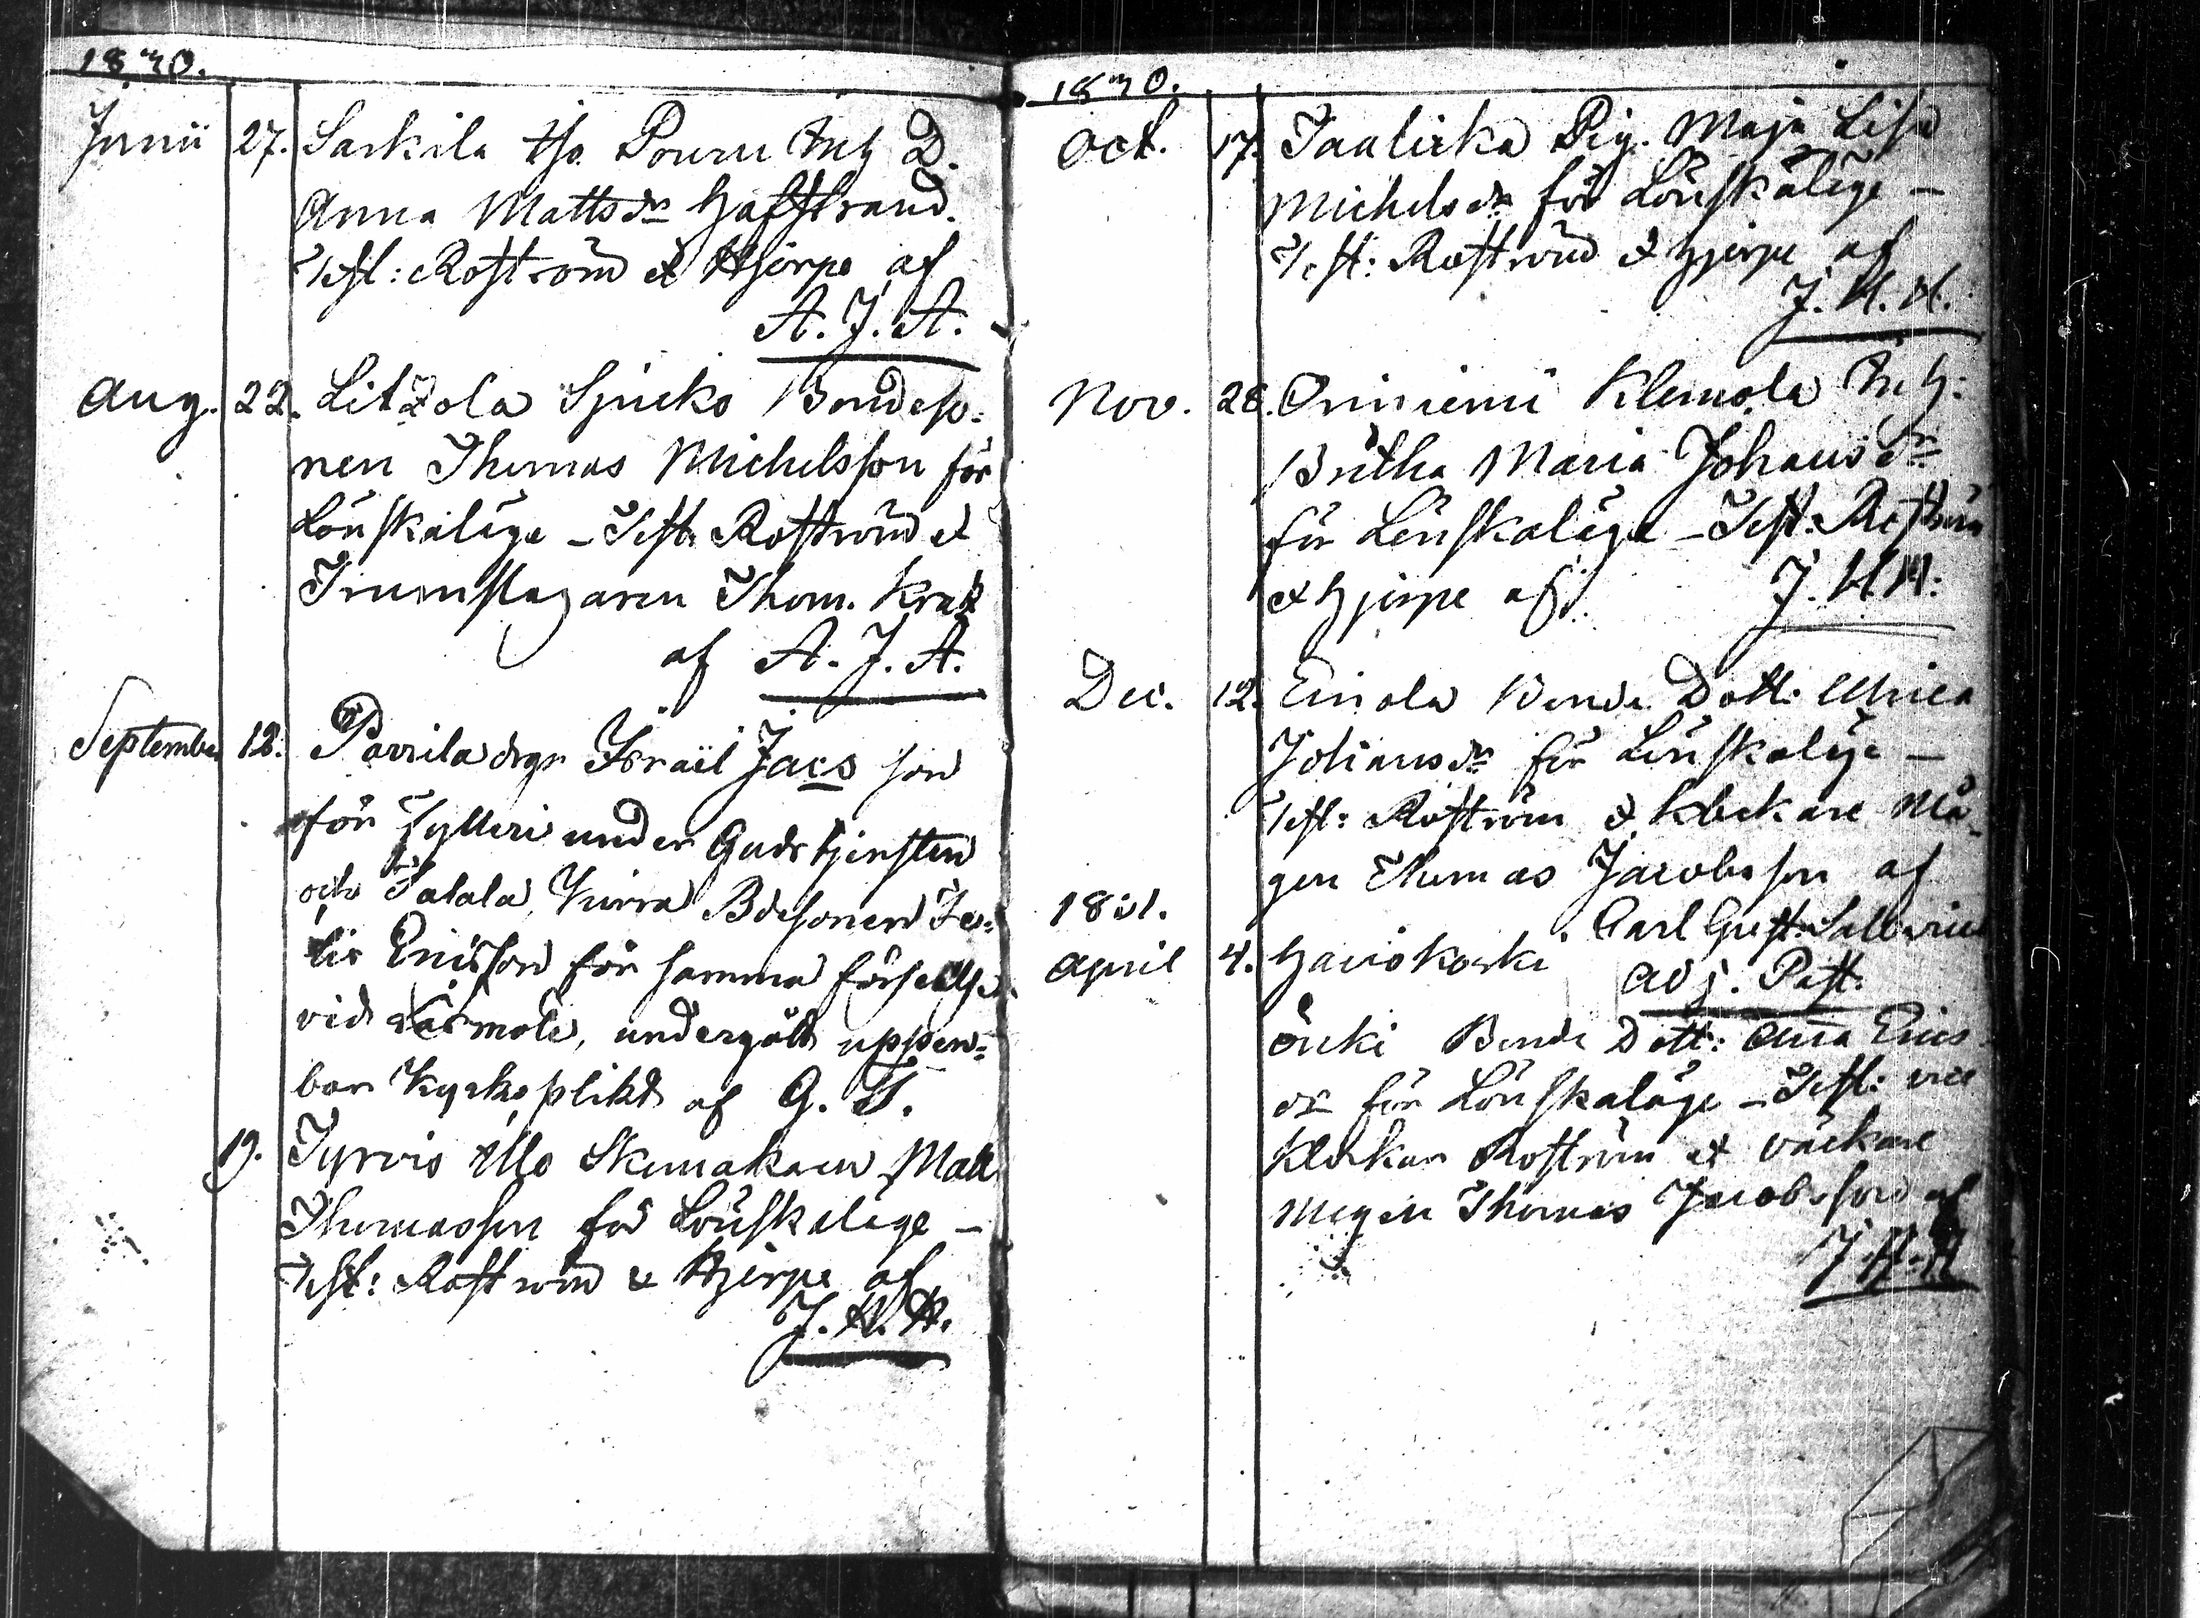 1830.
Junii 27. Sarkila Uso Pouru Inh D.
Anna Mattsdr Hafstrand.
Test: Roström et Hjerpe af
A. J. A.
Aug. 22. Litzola Sjuko Bondeso-
nen Thomas Michelsson för
Lönskaläge – Test. Roström et
Trumslagaren Thom. Krak
af A. J. A.
September 12. Pavvila drgr Israël Jacs son
för Fylleri under Gudstjensten
och Salala, Kurra Bdesonen
Ericsson för samma förseelse
vid, undergått uppen-
bar Kyrkoplikt af G. T.
19. Tyrvis Ulla Skomakaren Matts
Thomasson för Lönskaläge –
Test: Roström & Hjerpe af
J. H. H.
1830.
Oct. 17. Pig. Maja Lisa
Michelsdr för Lönskaläge –
Test: Roström et Hjerpe af
J. H. H.
Nov. 28. Klemola Inh:
Britha Maria Johansdr
för Lönskaläge – Test: Roström
et Hjerpe af J. H. H.
Dec. 12. Einola Bonde Dott: Ulrica
Johansdr för Lönskaläge –
Test: Roström & Klockare Må-
gen Thomas Jacobsson af
Carl Gust. Sallenius
adj. Past.
1831.
April 4. Hanskoski
Bonde Dott: Anna Erics
dr för Lönskaläge – Test: vice
Klockar Roström et väckare
Mågen Thomas Jacobsson af
J. H. H.